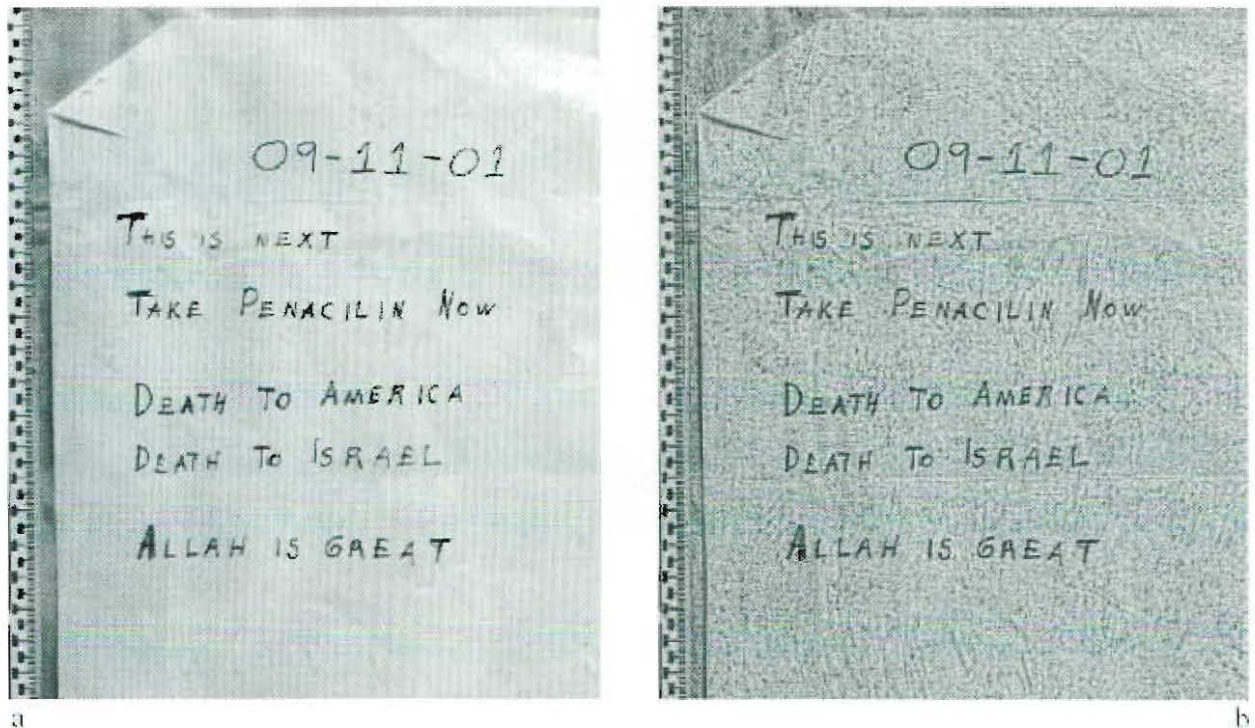 09-11-01
THIS IS NEXT
TAKE PENACILIN NOW
DEATH TO AMERICA
DEATH TO ISRAEL
ALLAH IS GREAT
a
09-11-01
THIS IS NEXT
TAKE PENACILIN NOW
DEATH TO AMERICA
DEATH TO ISRAEL
ALLAH IS GREAT
b